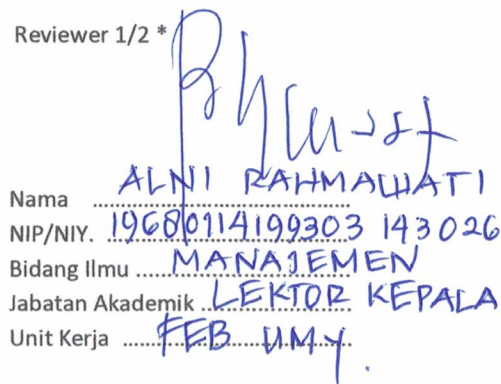 Reviewer 1/2 *
Nama ALNI RAHMAWATI
NIP/NIY. 19680114199303 143026
Bidang Ilmu MANAJEMEN
Jabatan Akademik LEKTOR KEPALA
Unit Kerja FEB UMY.